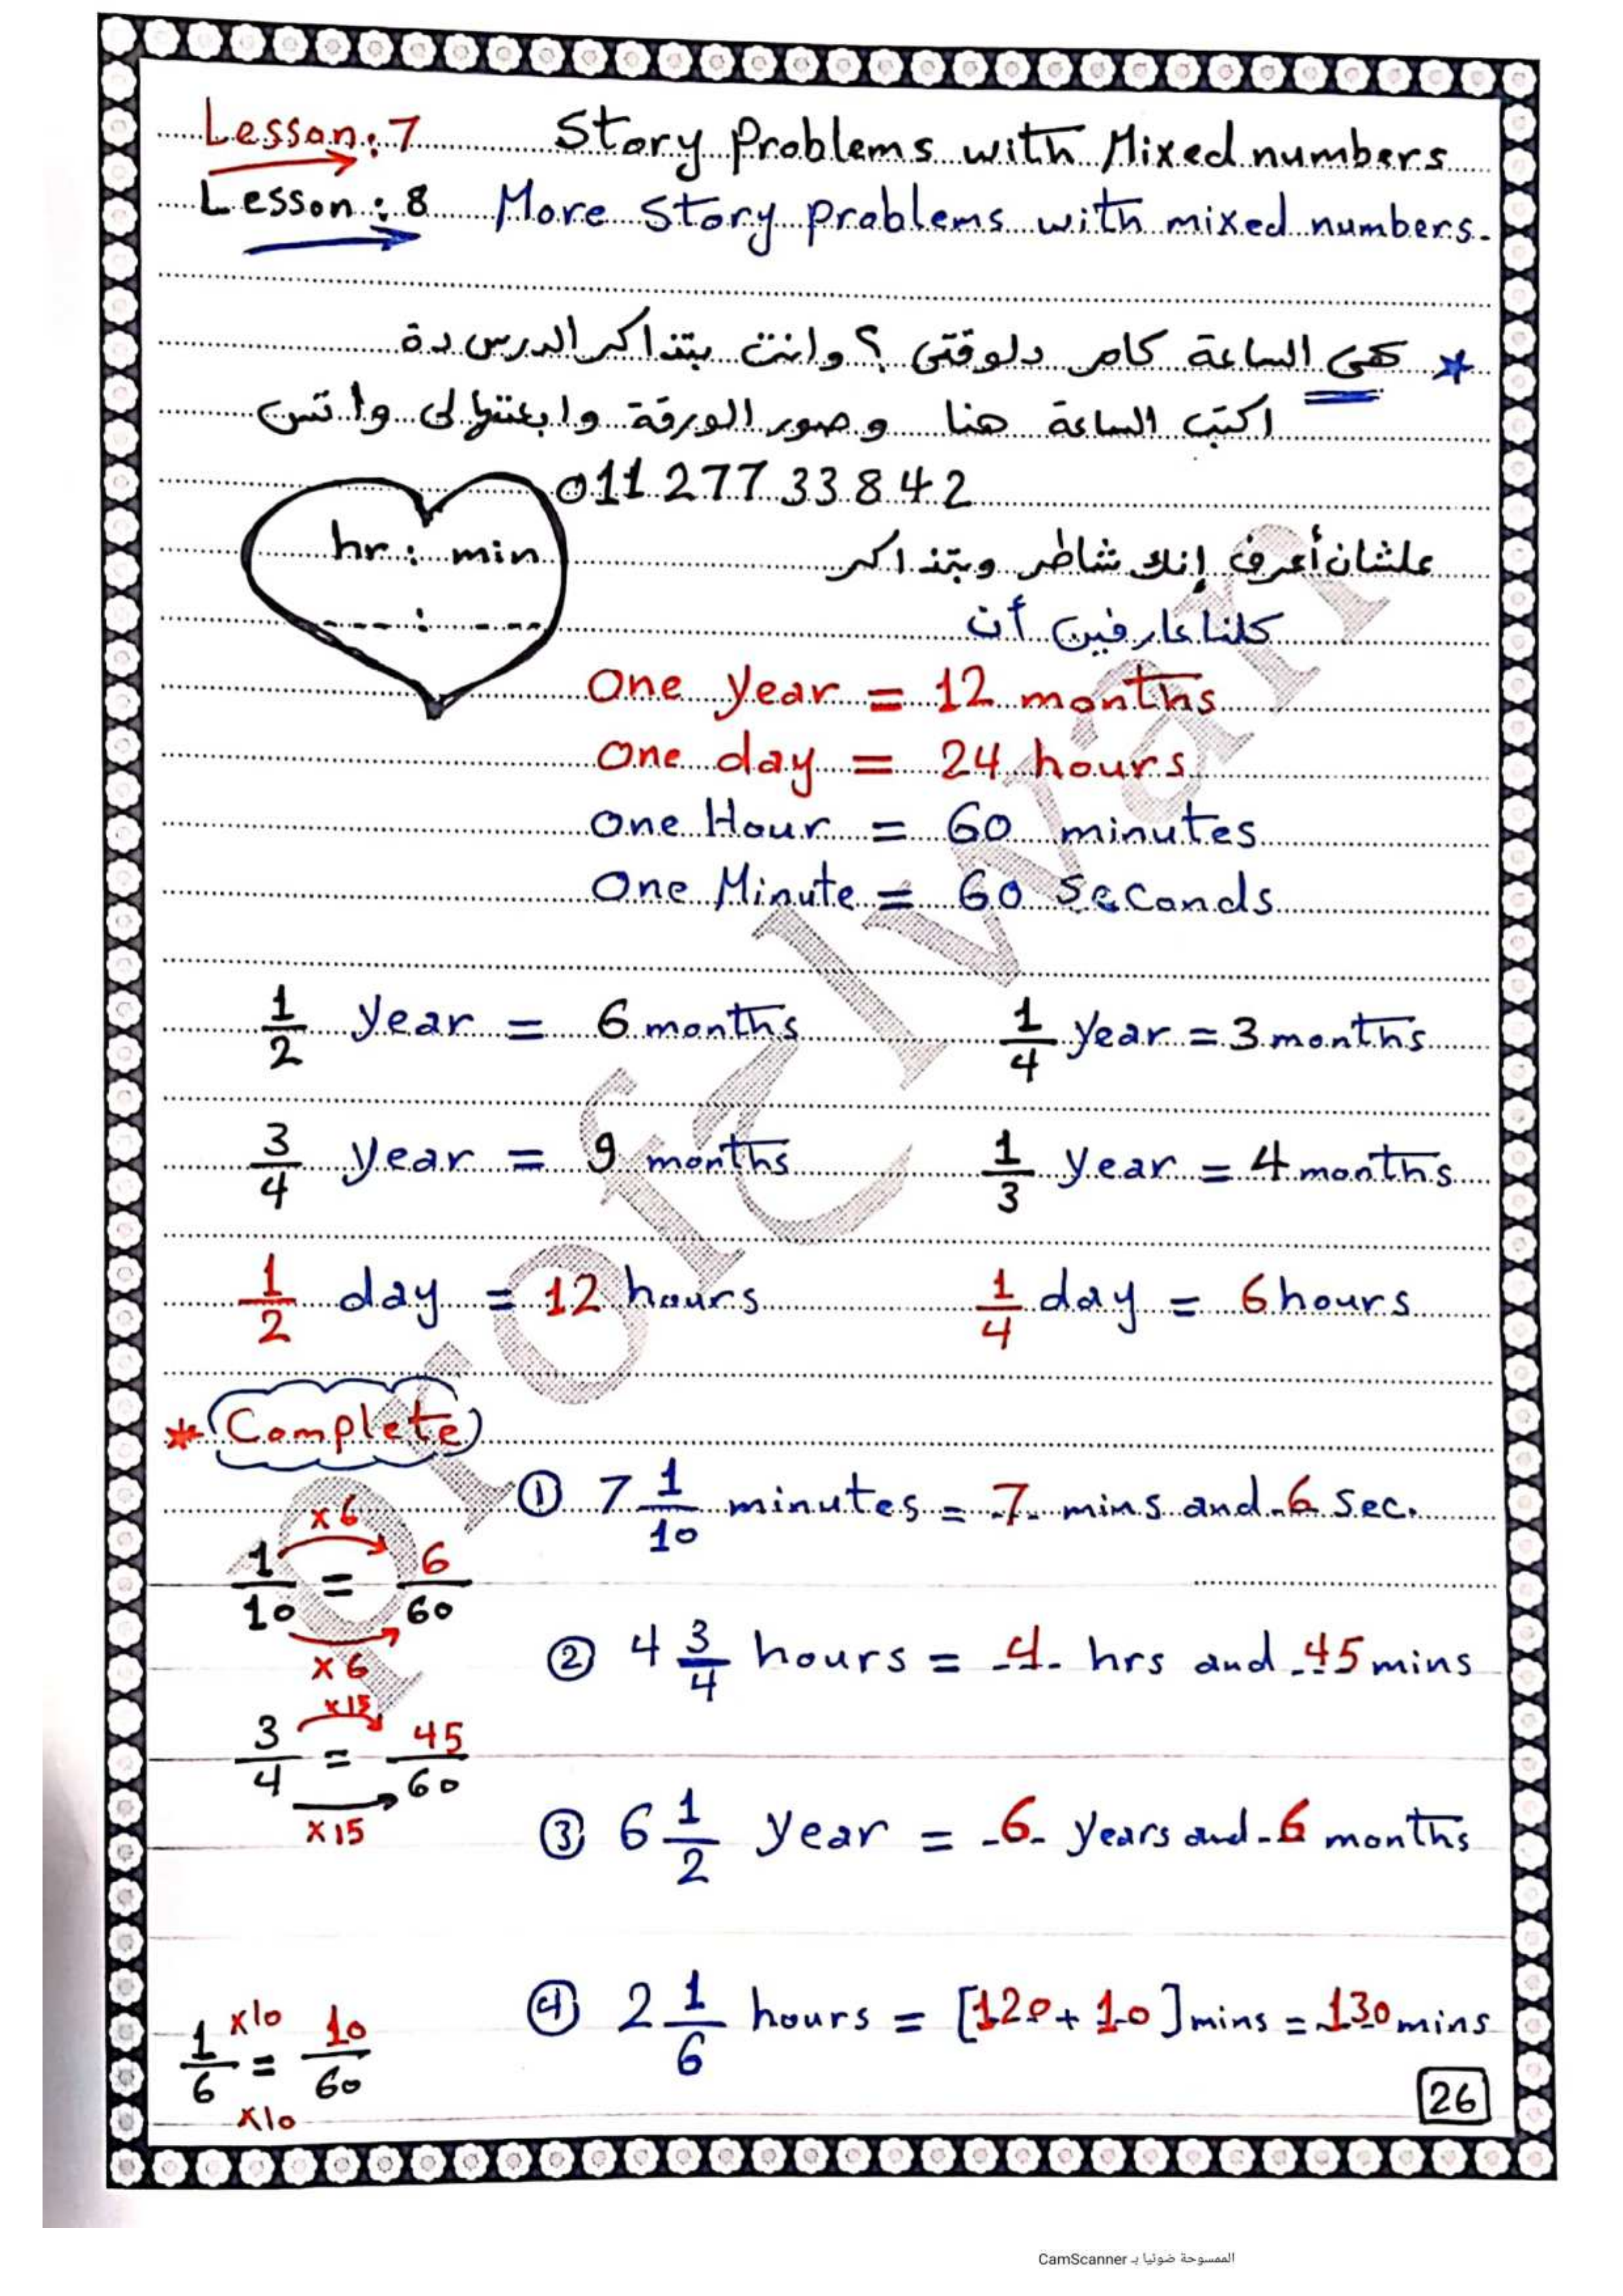 Lesson: 7 Story Problems with Mixed numbers
Lesson: 8 More Story problems with mixed numbers.
* هى الساعة كام دلوقتى؟ وانت بتذاكر الدرس دة
اكتب الساعة هنا وصور الورقة وابعتها لى واتس
01127733842
hr : min
علشان أعرف إنك شاطر وبتذاكر
---- : ----
كلنا عارفين أن
One year = 12 months
One day = 24 hours
One Hour = 60 minutes
One Minute = 60 Seconds
1/2 year = 6 months 1/4 year = 3 months
3/4 year = 9 months 1/3 year = 4 months
1/2 day = 12 hours 1/4 day = 6 hours
* Complete
① 7 1/10 minutes = 7 mins and 6 sec.
×6
1/10 = 6/60
×6
② 4 3/4 hours = 4 hrs and 45 mins
×15
3/4 = 45/60
×15
③ 6 1/2 year = 6 years and 6 months
④ 2 1/6 hours = [120 + 10] mins = 130 mins
×10
1/6 = 10/60
×10
26
الممسوحة ضوئيا بـ CamScanner